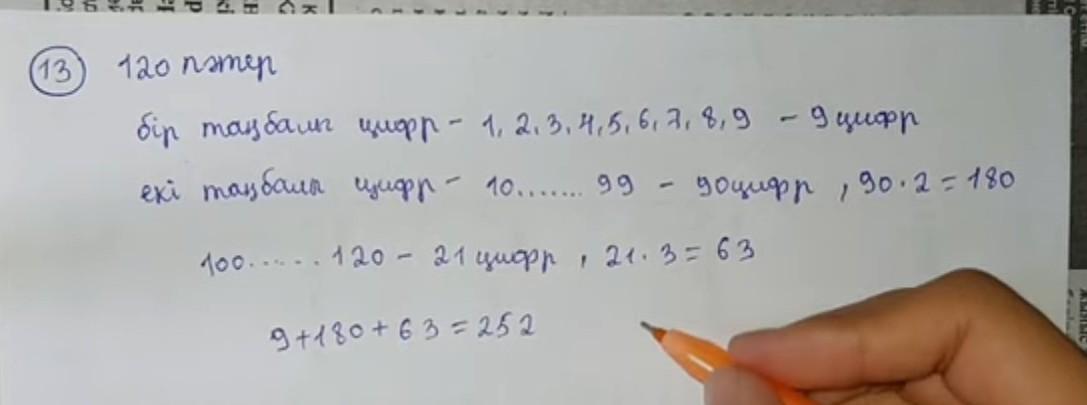 13 120 пәтер
бір таңбалы цифр - 1, 2, 3, 4, 5, 6, 7, 8, 9 - 9 цифр
екі таңбалы цифр - 10....... 99 - 90 цифр , 90 · 2 = 180
100...... 120 - 21 цифр , 21 · 3 = 63
9 + 180 + 63 = 252